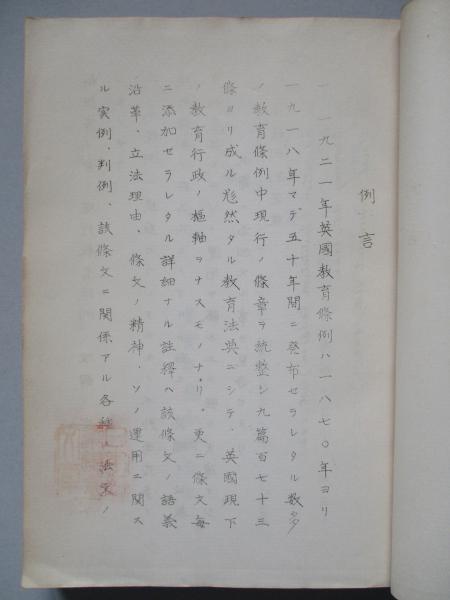 例言
一 一九二一年英國教育條例ハ一八七〇年ヨリ
一九一八年マデ五十年間ニ発布セラレタル数多
ノ教育條例中現行ノ條章ヲ統整シ九篇百七十三
條ヨリ成ル尨然タル教育法典ニシテ、英國現下
ノ教育行政ノ樞軸ヲナスモノナリ。更ニ條文毎
ニ添加セラレタル詳細ナル註釋ハ該條文ノ語義
沿革、立法理由、條文ノ精神、ソノ運用ニ関ス
ル実例、判例、該條文ニ関係アル各種ノ法文ノ